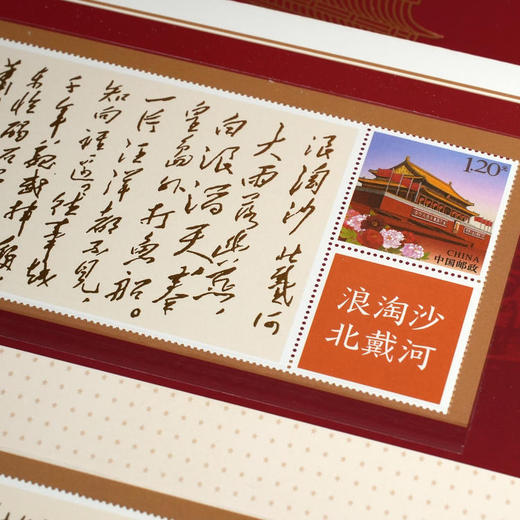 浪淘沙 北戴河
大雨落幽燕，
白浪滔天 秦
皇岛外打鱼船。
一片汪洋都不见，
知向谁边 往事越
千年 魏武挥鞭
东临碣石
1.20元
CHINA
中国邮政
浪淘沙
北戴河